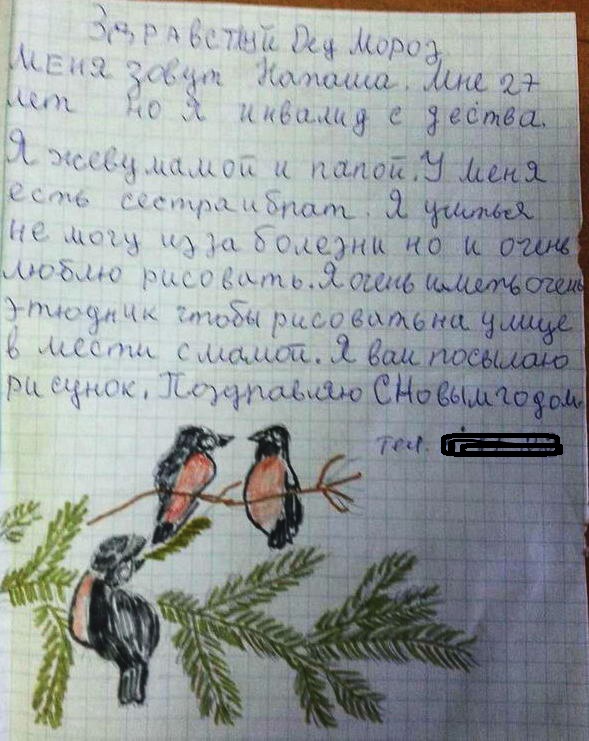 Здравствуй Дед Мороз.
Меня зовут Наташа. Мне 27
лет но я инвалид с дества.
Я жевумамой и папой. У меня
есть сестраибрат. Я учиться
не могу из за болезни но и очень
люблю рисовать. Я очень иметь очень
этюдник чтобы рисоватьна улице
в мести смамой. Я вам посылаю
рисунок. Поздравляю СНовымгодом.
тел.